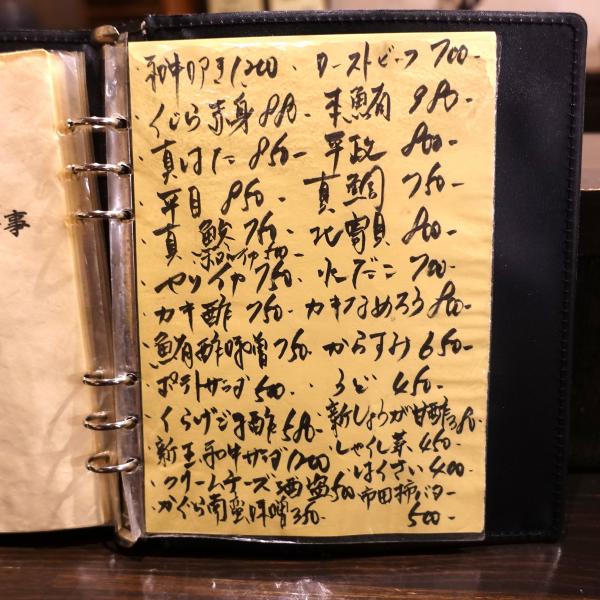 事
・和牛叩き1200
・ローストビーフ 700-
・くじら赤身 880
・本鮪 980-
・真はた 850-
平政 800-
・平目 850-
真鯛 750-
・真鯵 750-
北寄貝 800-
ヤリイカ 750-
水だこ 700-
・カキ酢 750-
カキなめろう 800-
・鮪酢味噌 750-
からすみ 650-
・ポテトサラダ 500-
うど 450-
・くらげジュ酢 580-
新しょうが甘酢 380-
・新玉和牛サラダ1200
・しゃくし菜 450-
・クリームチーズ酒盗 500
はくさい 400-
・かぐら南蛮味噌 350-
市田柿バター 500-